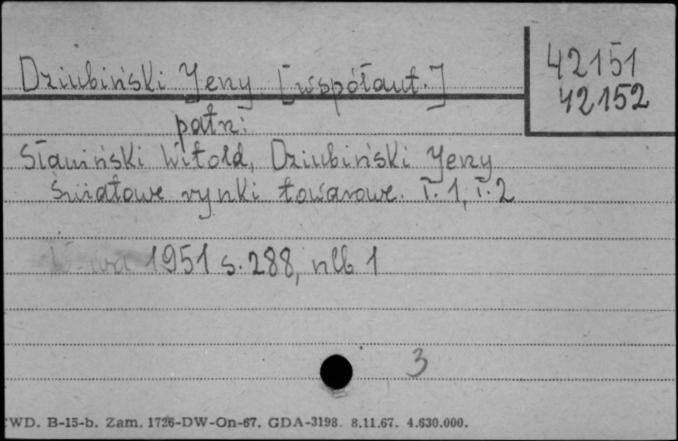 Dziubiński Jerzy [współaut.]
42151
42152
patrz:
Sławiński Witold, Dziubiński Jerzy
Światowe rynki towarowe. T. 1, T. 2
1951 s. 288, nlb 1
3
WD. B-15-b. Zam. 1726-DW-On-67. GDA-3198. 8.11.67. 4.630.000.